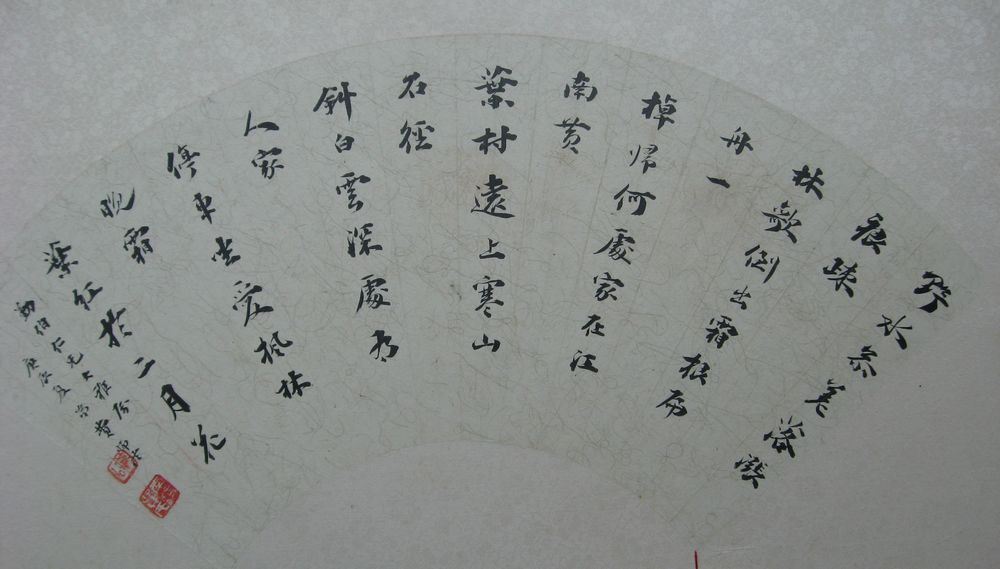 野水參差落漲
痕疎
林欹倒出霜根扁
舟一
棹歸何處家在江
南黄
葉村遠上寒山
石徑
斜白雲深處有
人家
停車坐愛楓林
晚霜
葉紅於二月花
伯仁兄大雅
庚辰夏